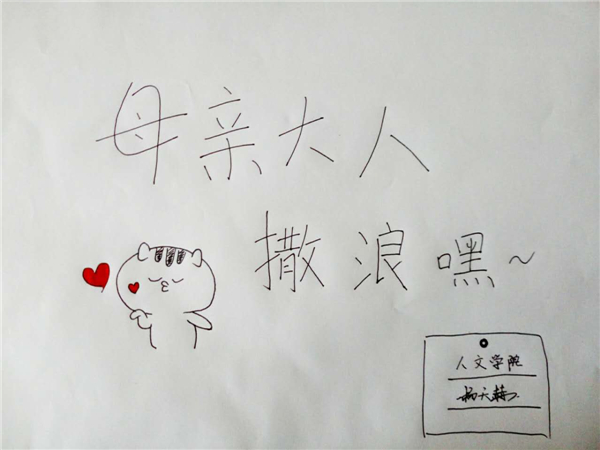 母亲大人
撒浪嘿~
人文学院